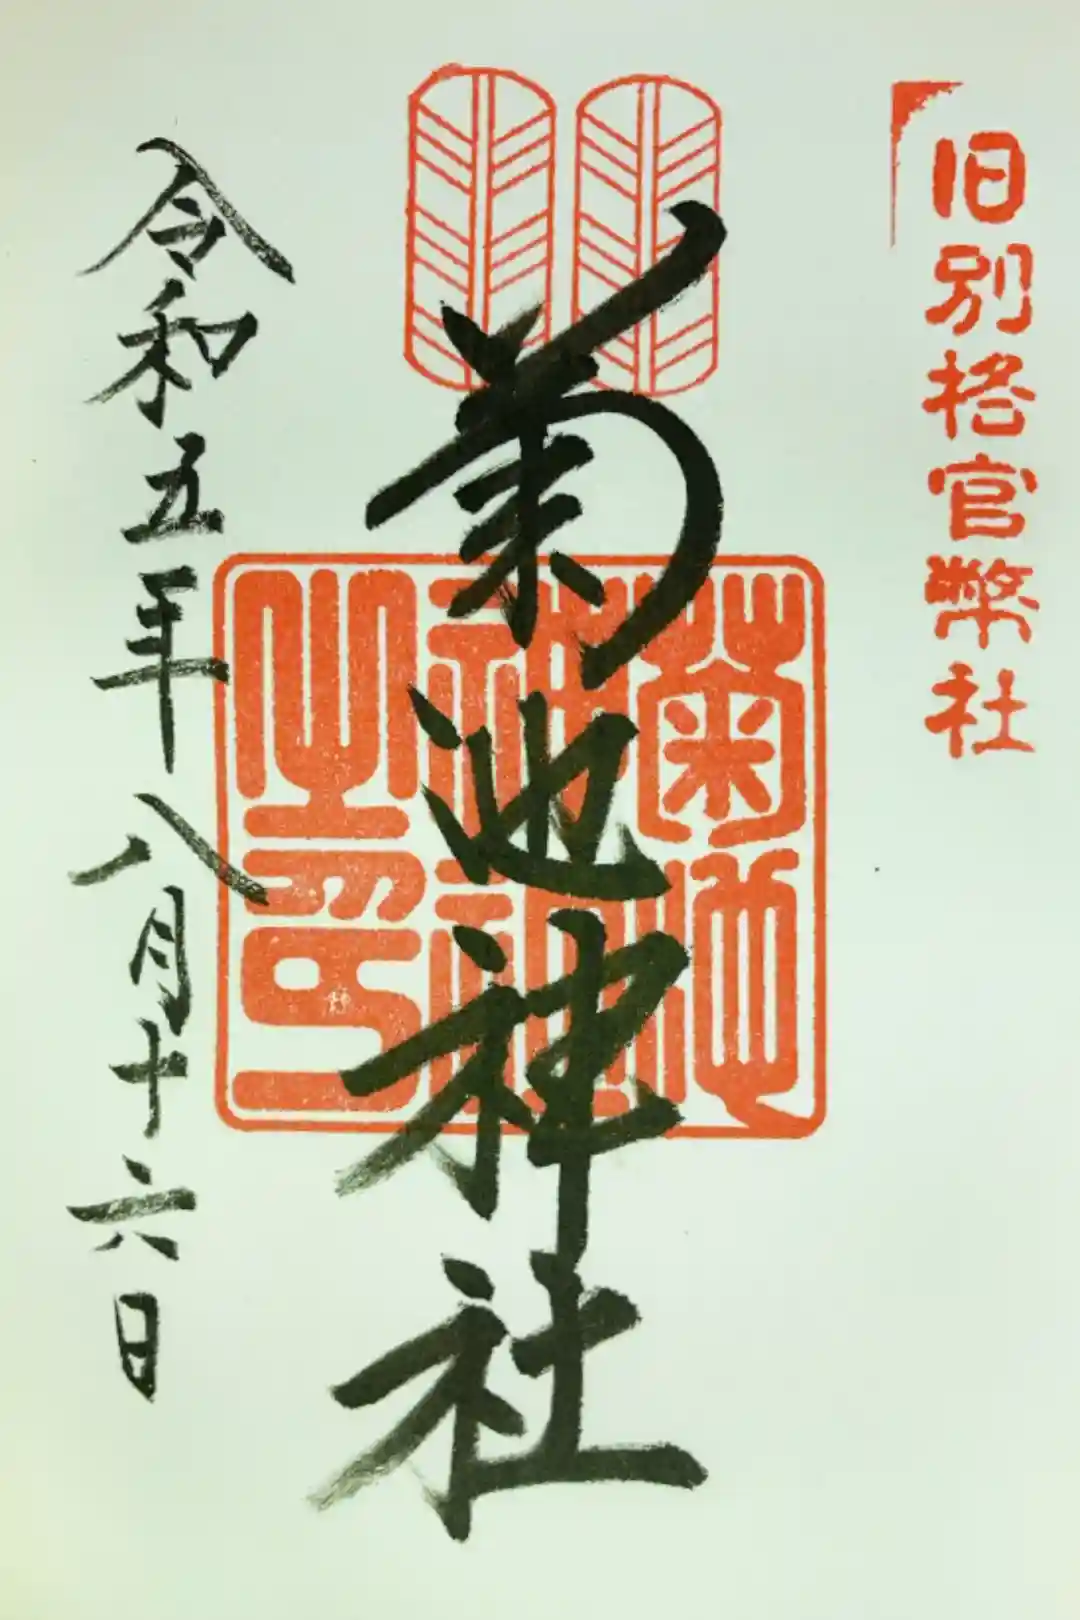 旧別格官幣社
菊池神社
菊池
神社
之印
令和五年八月十六日